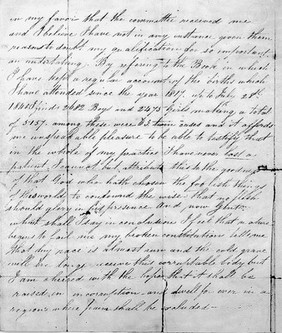 in my favor that the committee received me
and I believe I have not in any instance given them
reason to doubt my qualification for so important
an undertaking. By refering to the Book in which
I have kept a regular account of the births which
I have attended since the year 1817. up to July 28th
I find 2682 Boys and 2475 Girls making a total
of 5157. among these were 53 twin cases and it affords
me unspeakable pleasure to be able to testify that
in the whole of my practice I have never lost a
patient I cannot but attribute this to the goodness
of that God who hath chosen the foolish things
of this world to confound the wise that no flesh
should glory in his presence. And now Gentn
what shall I say in conclusion. I feel that a alone
begins to my broken constitution tells me
that my race is almost run and the cold grave
will ere long receive this corruptable body but
I am cheered with the hope that it shall be
raised in incorruption and dwell for ever in a
region where pain shall be